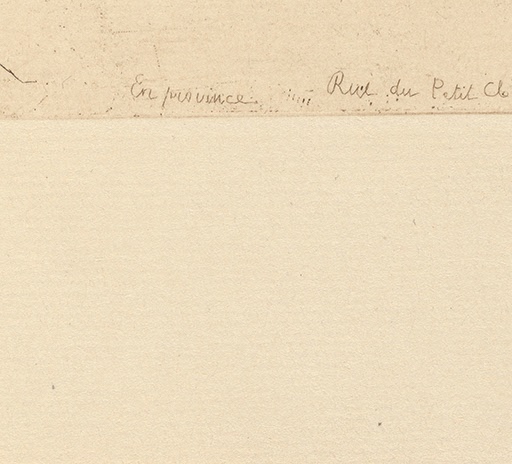 En province Rue du Petit Clo